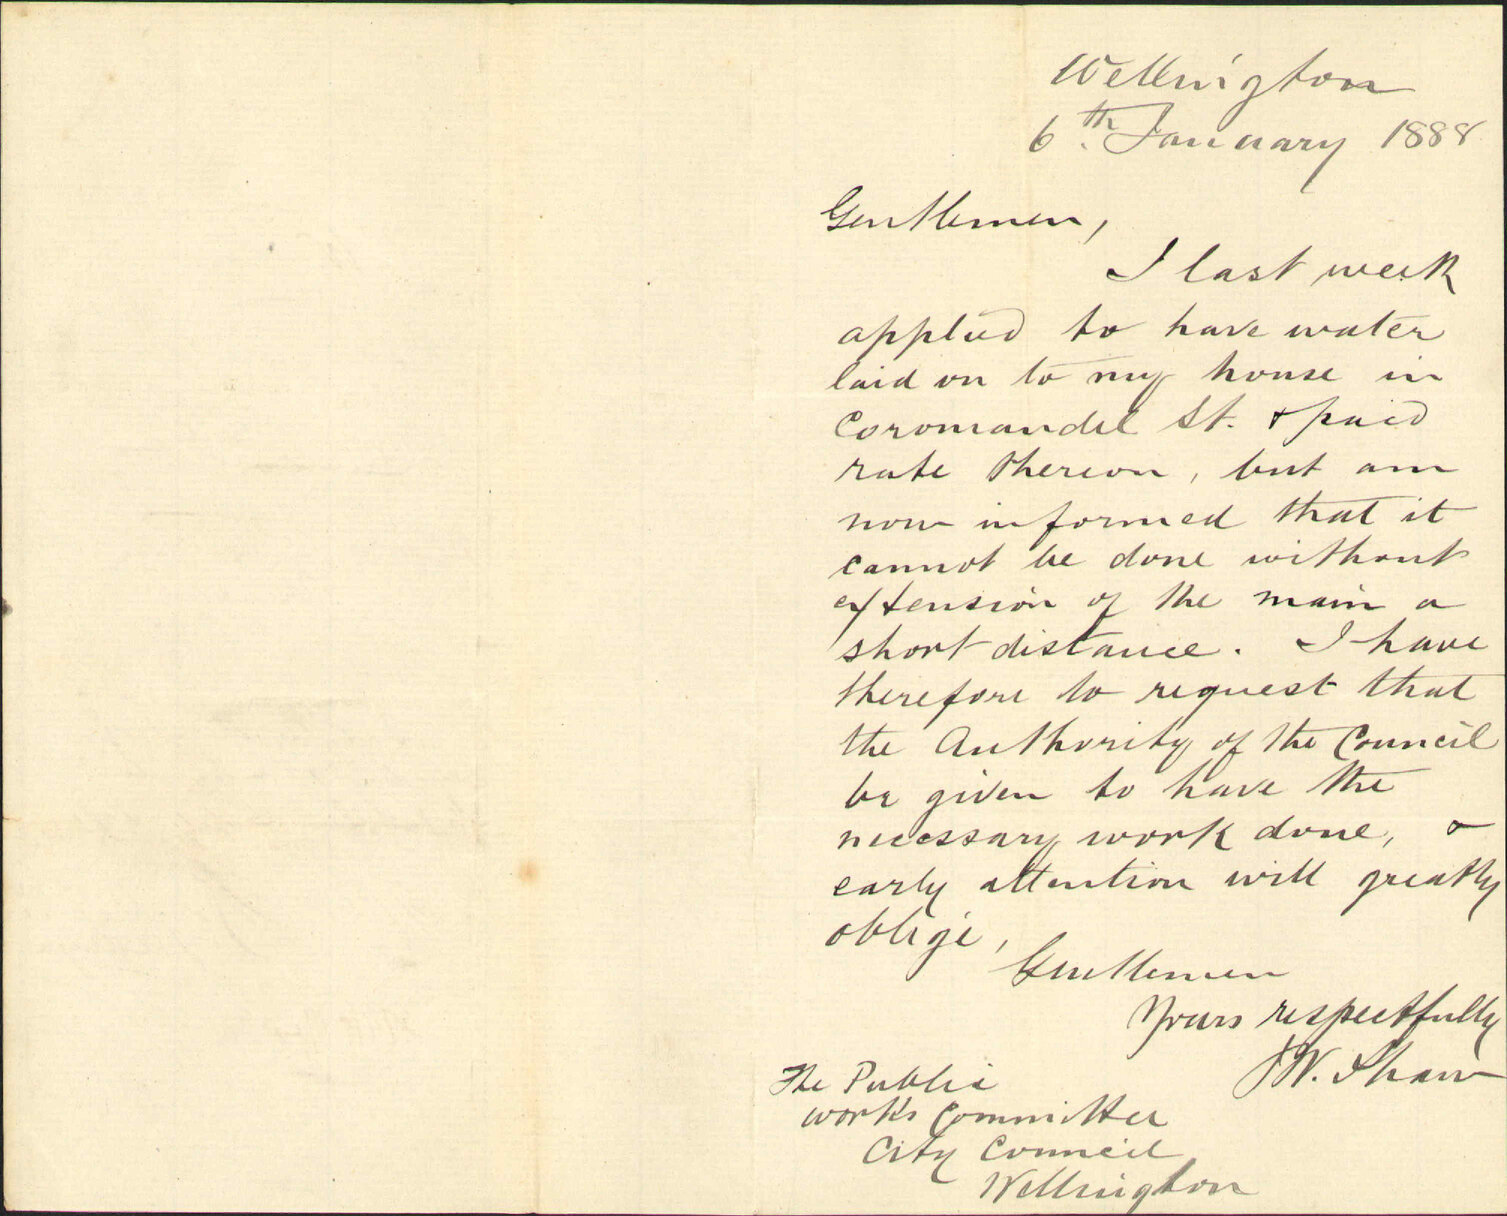 Wellington
6th. January 1888
Gentlemen,
I last week
applied to have water
laid on to my house in
Coromandel St. & paid
rate thereon, but am
now informed that it
cannot be done without
extension of the main a
short distance. I have
therefore to request that
the Authority of the Council
be given to have the
necessary work done, &
early attention will greatly
oblige,
Gentlemen
Yours respectfully
JW. Shaw
The Public
Works Committee
City Council
Wellington